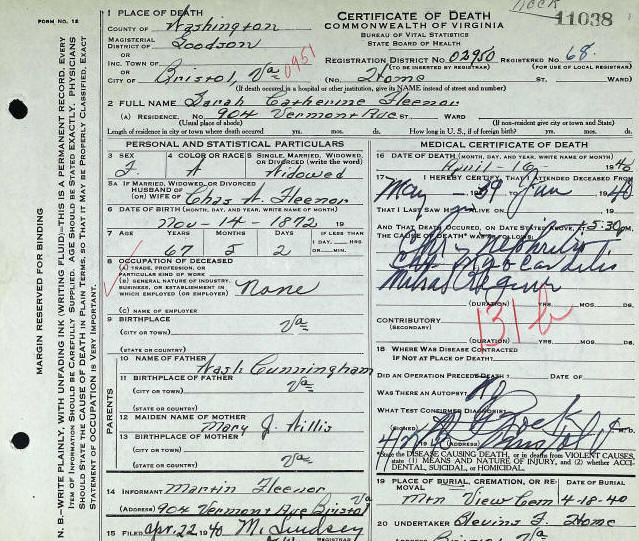 FORM NO. 12
11038
1 PLACE OF DEATH
COUNTY OF Washington
MAGISTERIAL DISTRICT OF Goodson
INC. TOWN OF
CITY OF Bristol, Va 0951
CERTIFICATE OF DEATH
COMMONWEALTH OF VIRGINIA
BUREAU OF VITAL STATISTICS
STATE BOARD OF HEALTH
REGISTRATION DISTRICT NO. 02950 REGISTERED NO. 68
(TO BE INSERTED BY REGISTRAR) (FOR USE OF LOCAL REGISTRAR)
(NO. Home ST. WARD)
(If death occurred in a hospital or other institution, give its NAME instead of street and number)
2 FULL NAME Sarah Catherine Fleenor
(A) RESIDENCE. NO. 904 Vermont Ave ST. WARD
(Usual place of abode) (If non-resident give city or town and State)
Length of residence in city or town where death occurred yrs. mos. ds. How long in U. S., if of foreign birth? yrs. mos. ds.
PERSONAL AND STATISTICAL PARTICULARS
3 SEX 4 COLOR OR RACE 5 SINGLE, MARRIED, WIDOWED, OR DIVORCED (write the word)
F. Widowed
5A IF MARRIED, WIDOWED, OR DIVORCED
HUSBAND OF
(OR) WIFE OF Chas A. Fleenor
6 DATE OF BIRTH (MONTH, DAY, AND YEAR, WRITE NAME OF MONTH)
Nov-14-1872 19
7 AGE YEARS MONTHS DAYS IF LESS THAN 1 DAY, HRS OR MIN.
67 5 2
8 OCCUPATION OF DECEASED
(A) TRADE, PROFESSION, OR PARTICULAR KIND OF WORK
(B) GENERAL NATURE OF INDUSTRY, BUSINESS, OR ESTABLISHMENT IN WHICH EMPLOYED (OR EMPLOYER) None
(C) NAME OF EMPLOYER
9 BIRTHPLACE
(CITY OR TOWN) Va
(STATE OR COUNTRY)
PARENTS
10 NAME OF FATHER Wash Cunningham
11 BIRTHPLACE OF FATHER
(CITY OR TOWN) Va
(STATE OR COUNTRY)
12 MAIDEN NAME OF MOTHER
Mary J. Willis
13 BIRTHPLACE OF MOTHER
(CITY OR TOWN) Va
(STATE OR COUNTRY)
14 INFORMANT Martin Fleenor
(ADDRESS) 904 Vermont Ave Bristol Va
15 FILED Apr. 22, 1940 M. Lindsey
REGISTRAR
MEDICAL CERTIFICATE OF DEATH
16 DATE OF DEATH (MONTH, DAY, AND YEAR, WRITE NAME OF MONTH)
April-16 1940
17 I HEREBY CERTIFY, THAT I ATTENDED DECEASED FROM
May 39 TO Jan 40
THAT I LAST SAW H ALIVE ON 19
AND THAT DEATH OCCURED, ON DATE STATED ABOVE, AT 5:30 P.M.
THE CAUSE OF DEATH* WAS AS FOLLOWS:
Nephritis
Myocarditis
Mitral Regur
(DURATION) YRS. MOS. DS.
131b
CONTRIBUTORY
(SECONDARY)
(DURATION) YRS. MOS. DS.
18 WHERE WAS DISEASE CONTRACTED
IF NOT AT PLACE OF DEATH?
DID AN OPERATION PRECEDE DEATH? DATE OF
WAS THERE AN AUTOPSY? No
WHAT TEST CONFIRMED DIAGNOSIS?
(SIGNED) M.D.
19 (ADDRESS) Bristol
*State the DISEASE CAUSING DEATH, or in deaths from VIOLENT CAUSES, state (1) MEANS AND NATURE OF INJURY, and (2) whether ACCIDENTAL, SUICIDAL, or HOMICIDAL.
19 PLACE OF BURIAL, CREMATION, OR REMOVAL DATE OF BURIAL
Mtn View Cem 4-18-40
20 UNDERTAKER Blevins F. Home
MARGIN RESERVED FOR BINDING
N. B.—WRITE PLAINLY, WITH UNFADING INK (WRITING FLUID)—THIS IS A PERMANENT RECORD. EVERY
ITEM OF INFORMATION SHOULD BE CAREFULLY SUPPLIED. AGE SHOULD BE STATED EXACTLY. PHYSICIANS
SHOULD STATE THE CAUSE OF DEATH IN PLAIN TERMS, SO THAT IT MAY BE PROPERLY CLASSIFIED. EXACT
STATEMENT OF OCCUPATION IS VERY IMPORTANT.